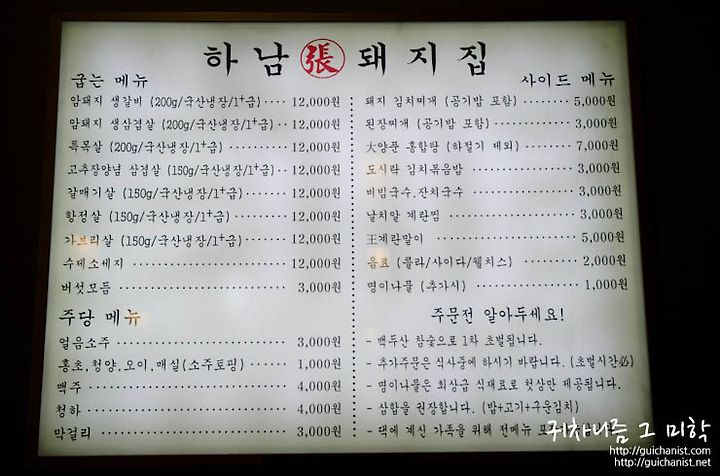 하남 張 돼지집
굽는 메뉴
암돼지 생갈비 (200g/국산냉장/1+급)···· 12,000원
암돼지 생삼겹살 (200g/국산냉장/1+급)·· 12,000원
특목살 (200g/국산냉장/1+급)·········· 12,000원
고추장양념 삼겹살 (150g/국산냉장/1+급)·· 12,000원
갈매기살 (150g/국산냉장/1+급)········ 12,000원
항정살 (150g/국산냉장/1+급)·········· 12,000원
가브리살 (150g/국산냉장/1+급)········ 12,000원
수제소세지 ···················· 12,000원
버섯모듬 ······················ 3,000원
주당 메뉴
얼음소주 ······················ 3,000원
홍초.청양.오이.매실(소주토핑) ········ 1,000원
맥주 ·························· 4,000원
청하 ·························· 4,000원
막걸리 ························ 3,000원
사이드 메뉴
돼지 김치찌개 (공기밥 포함) ········ 5,000원
된장찌개 (공기밥 포함) ············ 3,000원
大양푼 홍합탕 (하절기 제외) ········ 7,000원
도시락 김치볶음밥 ················ 3,000원
비빔국수.잔치국수 ················ 3,000원
날치알 계란찜 ···················· 3,000원
王계란말이 ······················ 5,000원
음료 (콜라/사이다/웰치스) ·········· 2,000원
명이나물 (추가시) ················ 1,000원
주문전 알아두세요!
- 백두산 참숯으로 1차 초벌됩니다.
- 추가주문은 식사중에 하시기 바랍니다. (초벌시간必)
- 명이나물은 최상급 식재료로 첫상만 제공됩니다.
- 삼합을 권장합니다. (밥+고기+구운김치)
- 댁에 계신 가족을 위해 전메뉴 포
귀차니즘 그 미학
http://guichanist.net
http://guichanist.net